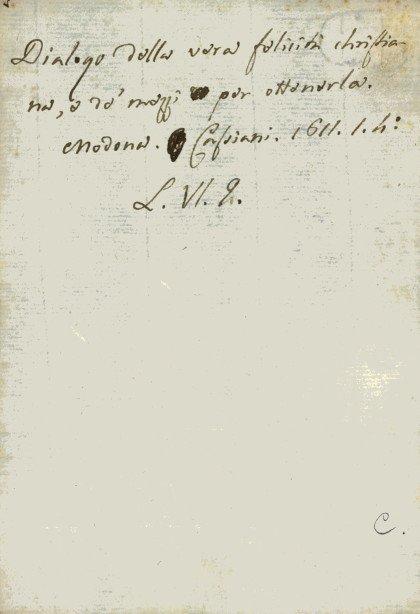 Dialogo della vera felicità christia-
na, e de' mezzi per ottenerla.
Modena. Cassiani. 1611. 1. h:
L. VI. 2.
C.